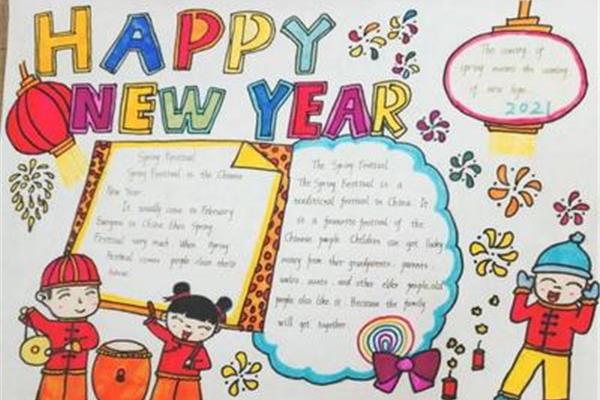 HAPPY
NEW YEAR
The coming of
spring means the coming
of new hope.
2021
Spring Festival
Spring Festival is the Chinese
New Year.
It usually come in February
Everyone in China likes Spring
Festival very much. When Spring
Festival comes people clean their
house.
The Spring Festival
The Spring Festival is a
traditional festival in China. It
is a favourite festival of the
Chinese people. Children can get lucky
money from their grandparents. parents.
uncles. aunts. and other elder people, old
people also like it. Because the family
will get together